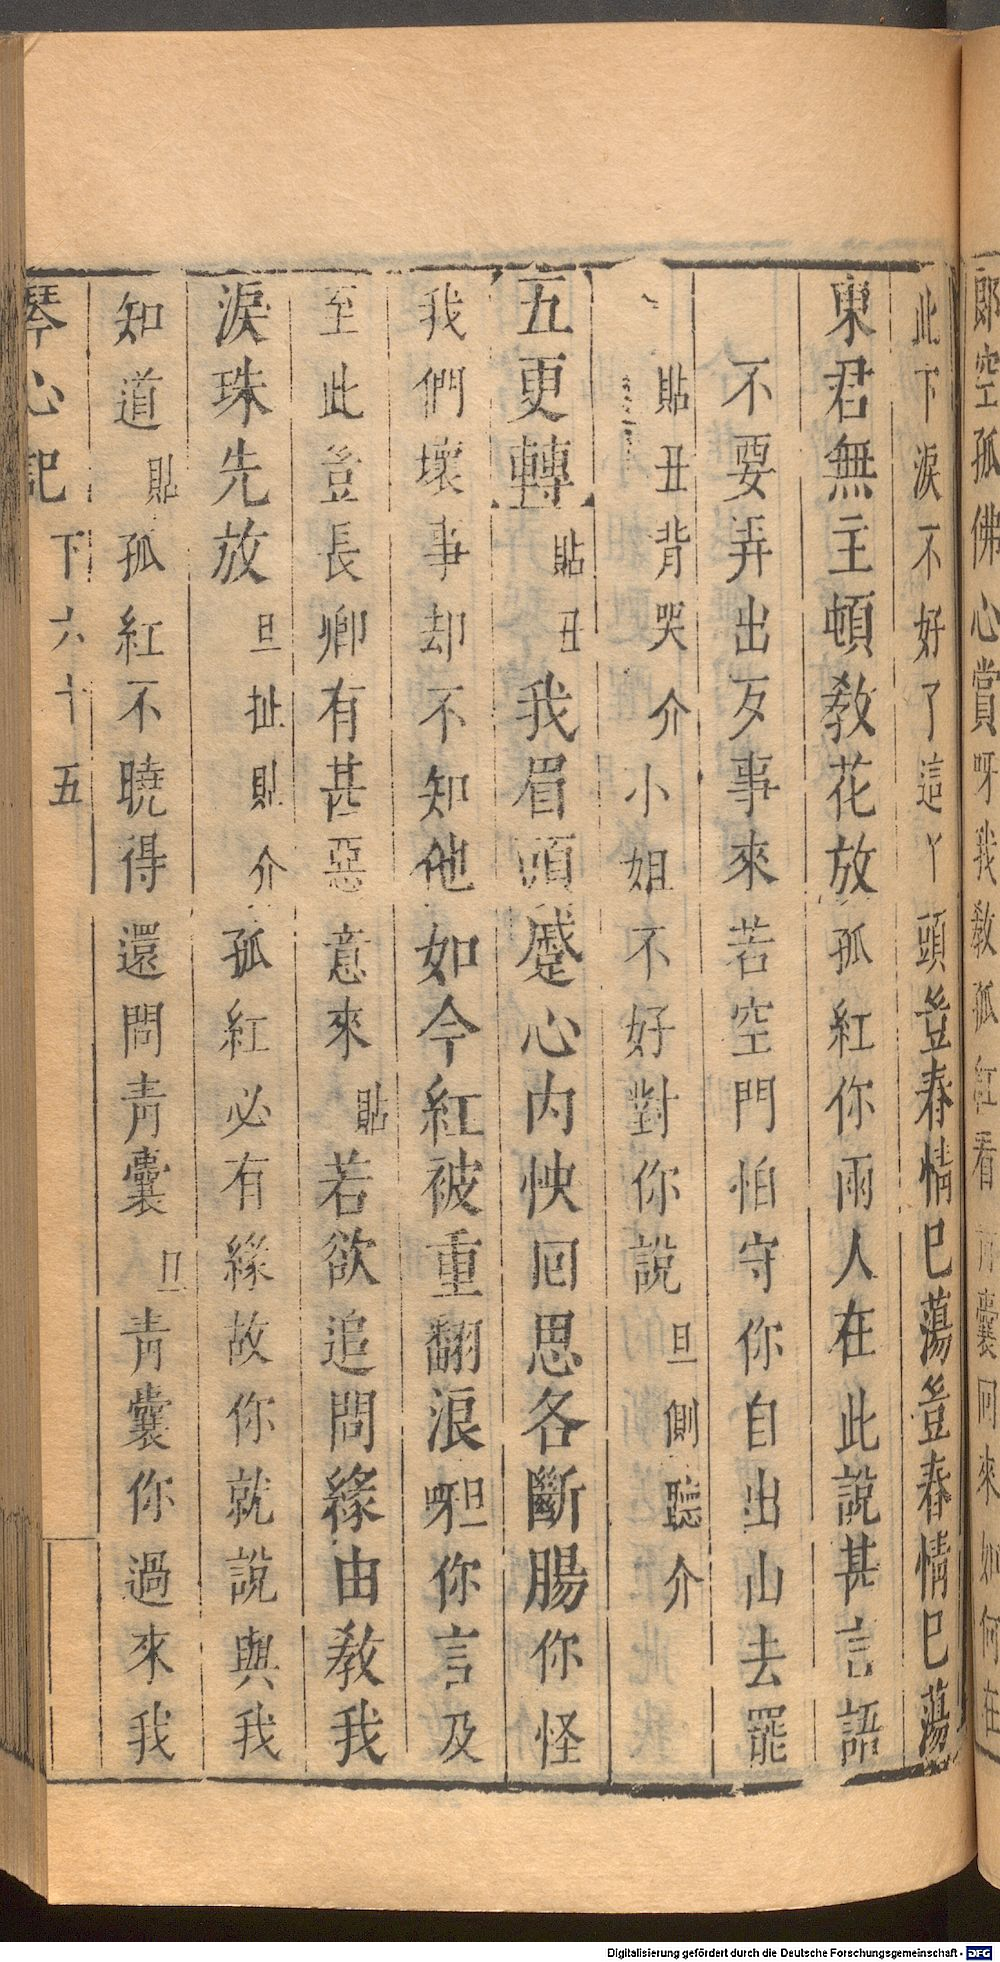 郎空孤佛心賞呀我教孤紅看青囊何來如何在
此下淚不好了這丫頭豈春情已蕩豈春情已蕩
東君無主頓教花放孤紅你兩人在此說甚言語
不要弄出歹事來若空門怕守你自出山去罷
貼丑背哭介小姐不好對你說旦側聽介
五更轉貼丑我眉頭蹙心內怏回思各斷腸你怪
我們壞事却不知他如今紅被重翻浪呀旦你言及
至此豈長卿有甚惡意來貼若欲追問緣由教我
淚珠先放旦扯貼介孤紅必有緣故你就說與我
知道貼孤紅不曉得還問青囊旦青囊你過來我
琴心記下六十五
Digitalisierung gefördert durch die Deutsche Forschungsgemeinschaft - DFG